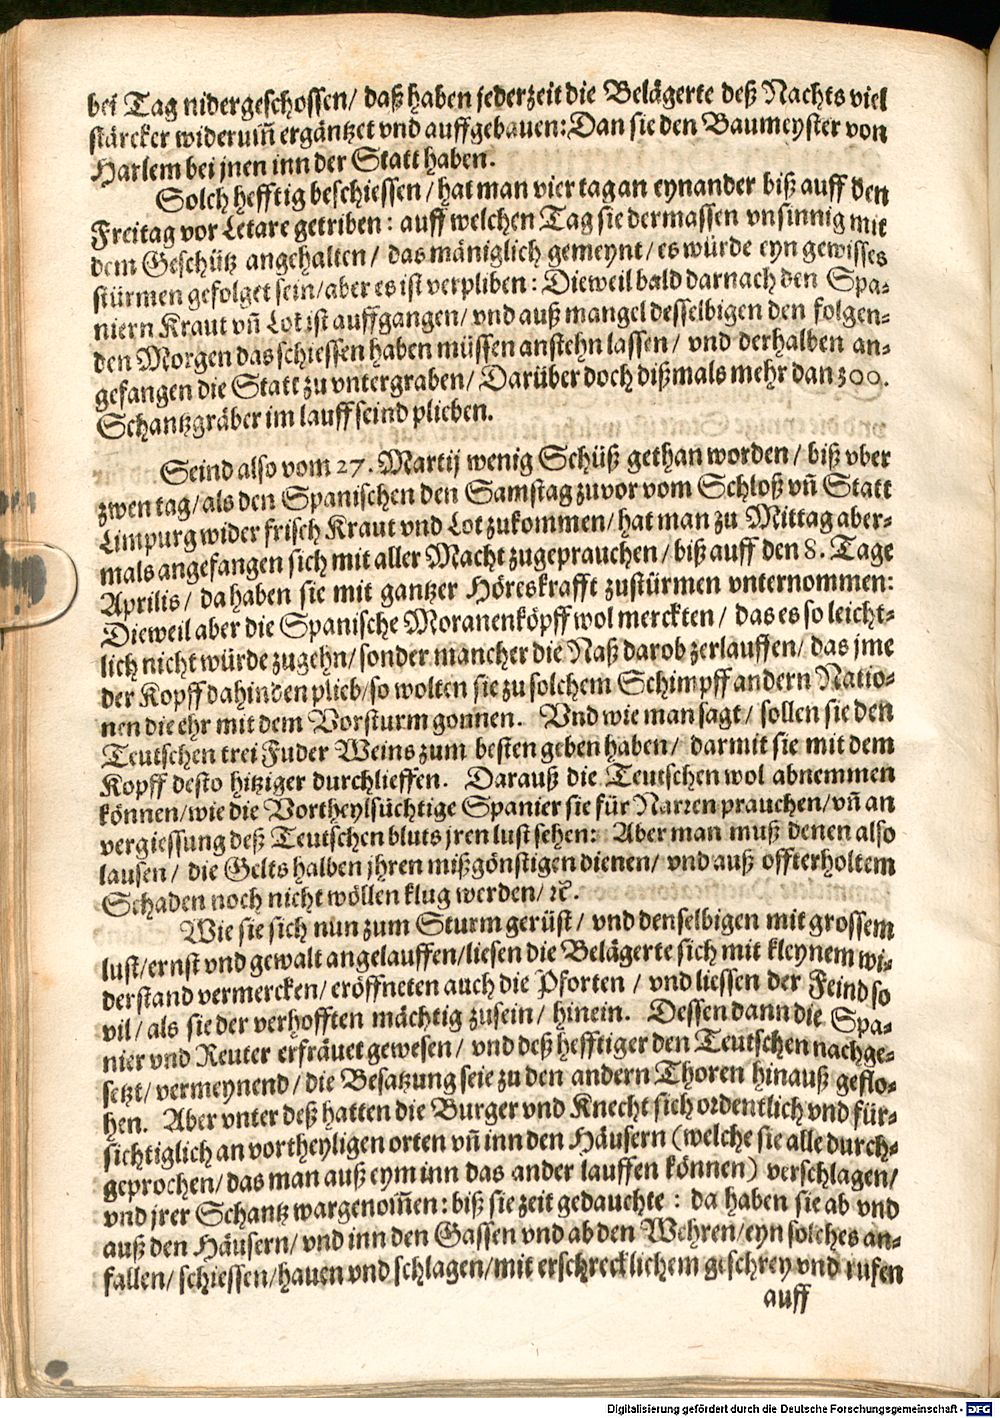 bei Tag nidergeschossen/ daß haben jederzeit die Belägerte deß Nachts viel
stärcker widerum̃ ergäntzet vnd auffgebauen: Dan sie den Baumeyster von
Harlem bei jnen inn der Statt haben.
Solch hefftig beschiessen/ hat man vier tag an eynander biß auff den
Freitag vor Letare getriben: auff welchen Tag sie dermassen vnsinnig mit
dem Geschütz angehalten/ das mäniglich gemeynt/ es würde eyn gewisses
stürmen gefolget sein/ aber es ist verpliben: Dieweil bald darnach den Spa-
niern Kraut vñ Lot ist auffgangen/ vnd auß mangel desselbigen den folgen-
den Morgen das schiessen haben müssen anstehn lassen/ vnd derhalben an-
gefangen die Statt zu vntergraben/ Darüber doch dißmals mehr dan 300.
Schantzgräber im lauff seind plieben.
Seind also vom 27. Martij wenig Schüß gethan worden/ biß vber
zwen tag/ als den Spanischen den Samstag zuvor vom Schloß vñ Statt
Limpurg wider frisch Kraut vnd Lot zukommen/ hat man zu Mittag aber-
mals angefangen sich mit aller Macht zugeprauchen/ biß auff den 8. Tage
Aprilis/ da haben sie mit gantzer Höreskrafft zustürmen vnternommen:
Dieweil aber die Spanische Moranenköpff wol merckten/ das es so leicht-
lich nicht würde zugehn/ sonder mancher die Naß darob zerlauffen/ das jme
der Kopff dahinden plieb/ so wolten sie zu solchem Schimpff andern Natio-
nen die ehr mit dem Vorsturm gonnen. Vnd wie man sagt/ sollen sie den
Teutschen trei Fuder Weins zum besten geben haben/ darmit sie mit dem
Kopff desto hitziger durchlieffen. Darauß die Teutschen wol abnemmen
können/ wie die Vortheylsüchtige Spanier sie für Narren prauchen/ vñ an
vergiessung deß Teutschen bluts jren lust sehen: Aber man muß denen also
lausen/ die Gelts halben jhren mißgönstigen dienen/ vnd auß offterholtem
Schaden noch nicht wöllen klug werden/ ꝛc.
Wie sie sich nun zum Sturm gerüst/ vnd denselbigen mit grossem
lust/ ernst vnd gewalt angelauffen/ liesen die Belägerte sich mit kleynem wi-
derstand vermercken/ eröffneten auch die Pforten/ vnd liessen der Feind so
vil/ als sie der verhofften mächtig zusein/ hinein. Dessen dann die Spa-
nier vnd Reuter erfräuet gewesen/ vnd deß hefftiger den Teutschen nachge-
setzt/ vermeynend/ die Besatzung seie zu den andern Thoren hinauß geflo-
hen. Aber vnter deß hatten die Burger vnd Knecht sich ordentlich vnd für-
sichtiglich an vortheyligen orten vñ inn den Häusern (welche sie alle durch-
geprochen/ das man auß eym inn das ander lauffen können) verschlagen/
vnd jrer Schantz wargenom̃en: biß sie zeit gedauchte: da haben sie ab vnd
auß den Häusern/ vnd inn den Gassen vnd ab den Wehren/ eyn solches an-
fallen/ schiessen/ hauen vnd schlagen/ mit erschrecklichem geschrey vnd rufen
auff
Digitalisierung gefördert durch die Deutsche Forschungsgemeinschaft - DFG